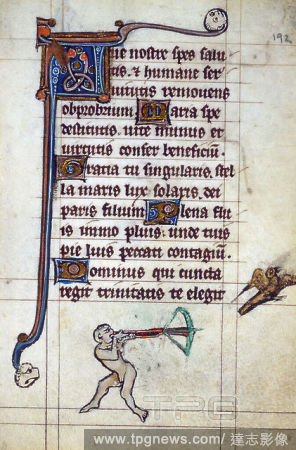 192
Aue nostre spes salu
tis. & humane ser
uitutis remouens
obprobrium Maria spe
destitutis. uite munus et
uirtutis confer beneficiū.
Gratia tu singularis. stel
la maris lux solaris. dei
paris filium Plena flu
is immo pluis. unde tuis
pie luis peccati contagiū.
Dominus qui cuncta
regit trinitatis te elegit
TPG
www.tpgnews.com / 達志影像